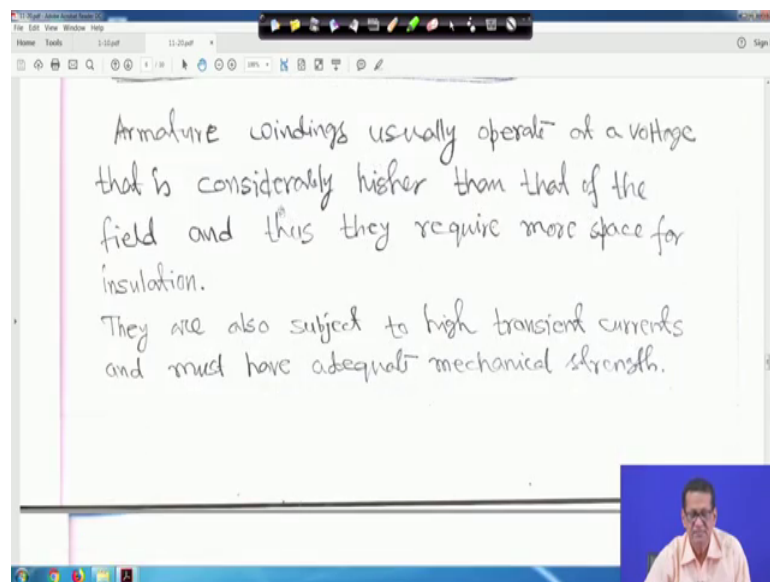 11-20.pdf - Adobe Acrobat Reader DC
File Edit View Window Help
Home Tools 1-10.pdf 11-20.pdf × Sign
Armature windings usually operate at a voltage
that is considerably higher than that of the
field and thus they require more space for
insulation.
They are also subject to high transient currents
and must have adequate mechanical strength.